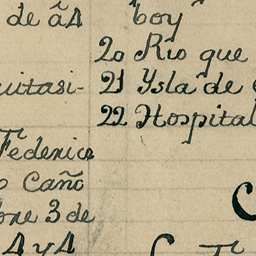 de á A
uitasi-
Federico
o Caño
one 3 de
A y A
boy
20 Rio que
21 Ysla de
22 Hospital